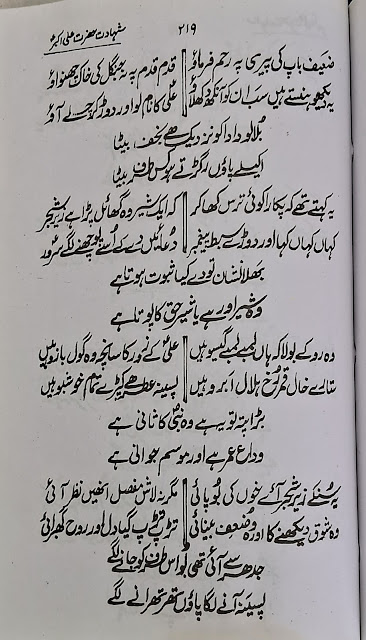 شہادت حضرت علی اکبرؑ
۲۱۹
ضعیف باپ کی پیری پہ رحم فرماؤ
قدم قدم پہ نہ جنگل کی خاک چھنواؤ
یہ دیکھو ہنستے ہیں سب ان کو آنکھ دکھلاؤ
علیؑ کا نام لو اور دوڑ کر چلے آؤ
بلا لو دادا کو نزدیک ہے نجف بیٹا
اکیلے پاؤں رگڑتے ہو کس طرف بیٹا
یہ کہتے تھے کہ پکارا کوئی ترس کھا کر
کہ ایک شیر وہ گھائل پڑا ہے زیرِ شجر
کہاں کہاں کہا اور دوڑے سبط پیغمبر
دعائیں دے کے اُسے پوچھنے لگے سرور
بھلا نشان تو دے کیا ثبوت ہوتا ہے
وہ شیر اور ہے یا شیر حق کا پوتا ہے
وہ رو کے بولا کہ ہاں لمبے لمبے گیسو ہیں
علیؑ کے زور کا سانچہ وہ گول بازو ہیں
ستارے خال قمر رخ ہلال ابرو ہیں
پسینہ عطر ہے کپڑے تمام خوشبو ہیں
بڑا پتہ تو یہ ہے وہ نبیؐ کا ثانی ہے
وداع عمر ہے اور موسم جوانی ہے
یہ سن کے زیر شجر آئے خوں کی بو پائی
مگر نہ لاش مفصل انھیں نظر آئی
وہ شوق دیکھنے کا اور وہ ضعف بینائی
تڑپ تڑپ گیا دل اور روح گھبرائی
جدھر سے آئی تھی بو اس طرف کو جانے لگے
پسینہ آنے لگا پاؤں تھرتھرانے لگے